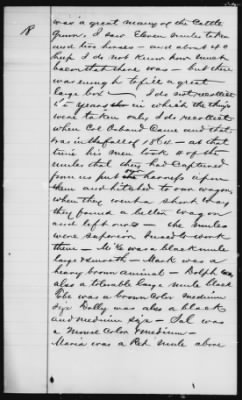 18
was a great many of the Cattle
Gunn. I saw Eleven mules taken
and two horses – and about 40
I do not know how much
bacon that there was – but there
was enough to fill a great
large box – I do not recollect
the years in which the things
were taken only I do recollect
when Col Osband Came and that
was in the fall of 1864 – at that
time his men took 8 of the
mules that they had Captured
from us put the harness upon
them and hitched to our wagon,
when they went a short way
they found a better wagon
and left ours – the mules
were superior mules to work
there – was a black mule
large & smooth – Mack was a
heavy brown animal – Dolph
also a tolerable large mule black
was a brown color medium
size Dolly was also a black
and medium size – Sal was
a Mouse Color & medium –
Maria was a Red mule above